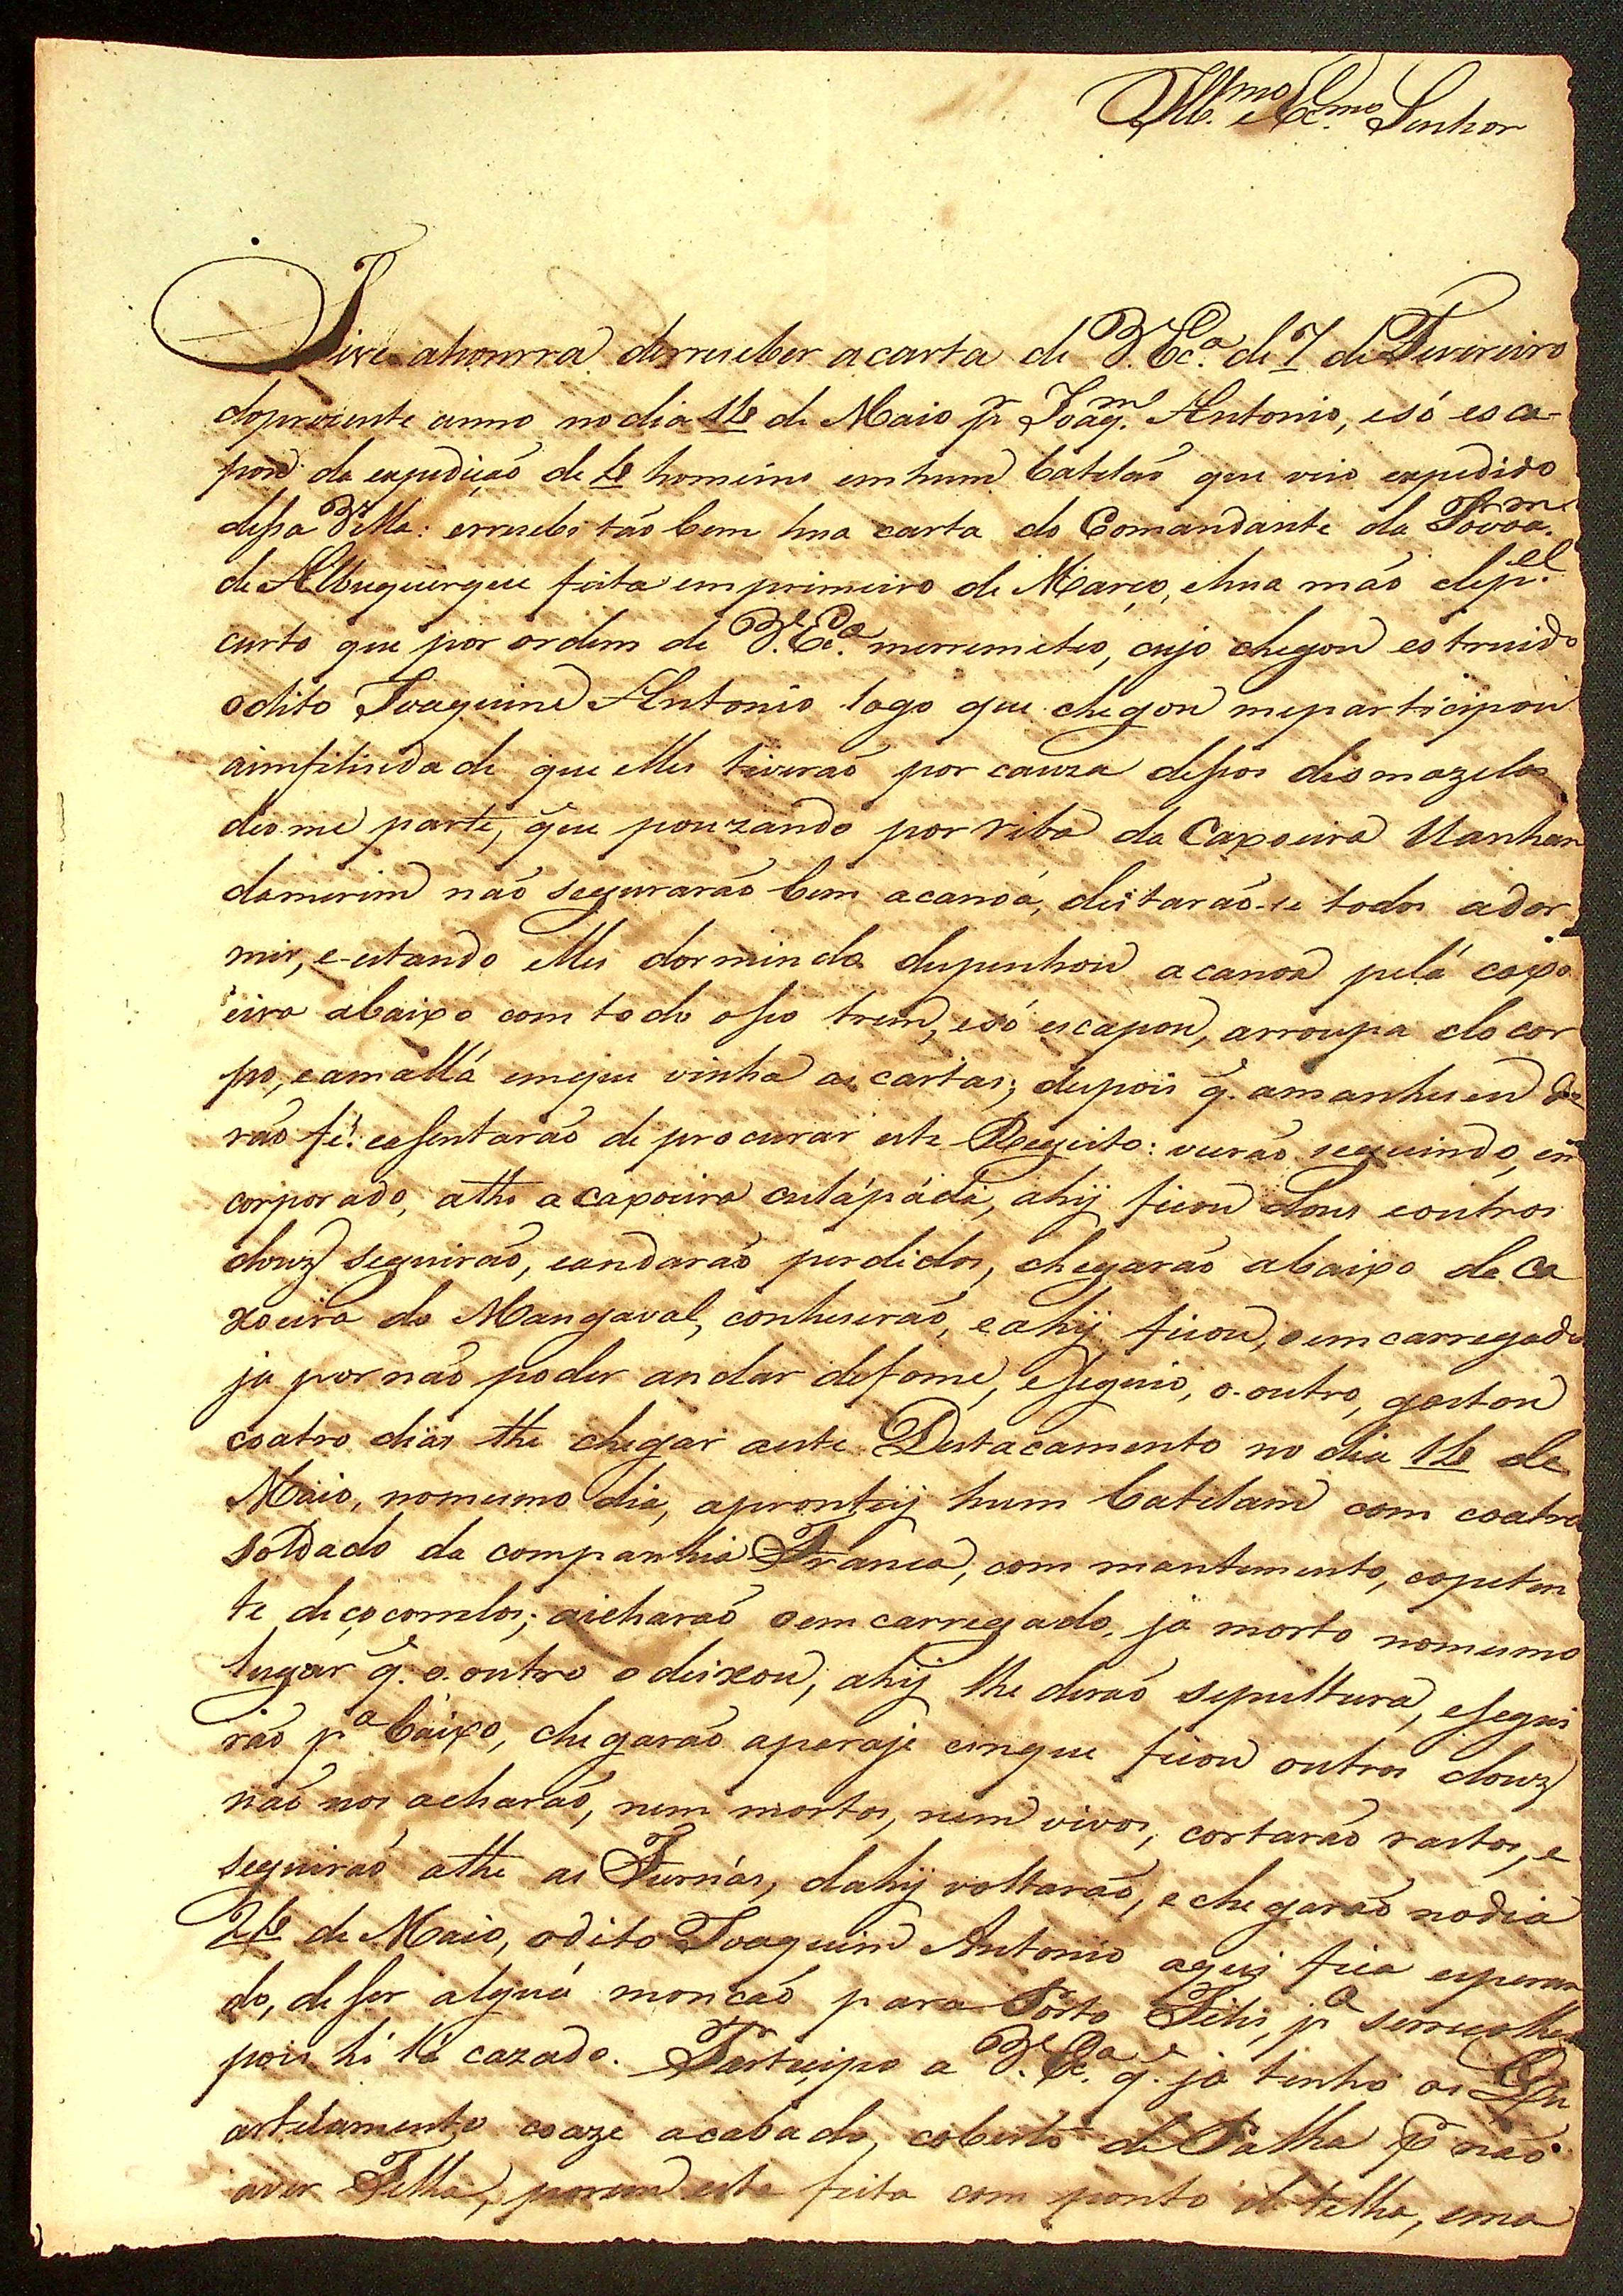 Ill.mo e Ex.mo Senhor
Tive ahonrra derreseber acarta de V. Ex.a de 7 de Fevereiro
doprezente anno no dia 16 de Maio pr Joaq.m Antonio, esó esca-
pou da expedição de 4 homeins emhum batelão que veio expedido
desa Villa: erresebi tão bem hua carta do Comandante da Povoa.m
de Albuquerque feita emprimeiro de Março, ehua mão depp.el
curto que por ordem de V. Ex.a merremeteo, cujo chegou estruido
odito Joaquim Antonio logo que chegou meparticipou
ainfelisidade que elles tiverão por cauza desos desmazelos
deo me parte, que pouzando por riba da Caxoeira Nanhan
damerim não segurarão bem acanoa, deitarão-se todos ador
mir, e estando elles dormindo depenhou acanoa pela caxo
eira abaixo com todo oseo trem, esó escapou, arroupa do cor
po, eamallá emque vinha as cartas; depois q. amanheseu de
rão fé: easentarão de procurar este Prezisto: vierão seguindo, en
corporado, athe a caxoeira culápáda, ahy ficou dous eoutros
douz seguirão, eandarão perdidos, chegarão abaixo da Ca
xoeira do Mangaval, conheserão, eahy ficou, oemcarregado
ja pornão poder andar defome, eseguio, o outro, gastou
coatro dias the chegar aeste Destacamento no dia 16 de
Maio, nomesmo dia, aprontey hum batelam com coatro
soldado da companhia Franca, com mantimento, copeten
te deçocorrelos; aicharão oemcarregado, ja morto nomesmo
lugar q. o outro odeixou, ahy lhe derão sepultura, esegui
rão p.a baixo, chegarão aparaje emque ficou outros douz
não nos acharão, nem mortos, nem vivos, cortarão rastos, e
seguirão athe as Furnas, dahy voltarão, echegarão nodia
26 de Maio, odito Joaquim Antonio aqui fica esperan
do, deser algua monção para Porto Felis, p.a serrecolher
pois hé lá cazado. Partecipo a V. Ex.a q. ja tenho os Qu
artelamento coaze acabado, coberto de Palha pr não
aver Telha, porem esta feito com ponto detelha, ema